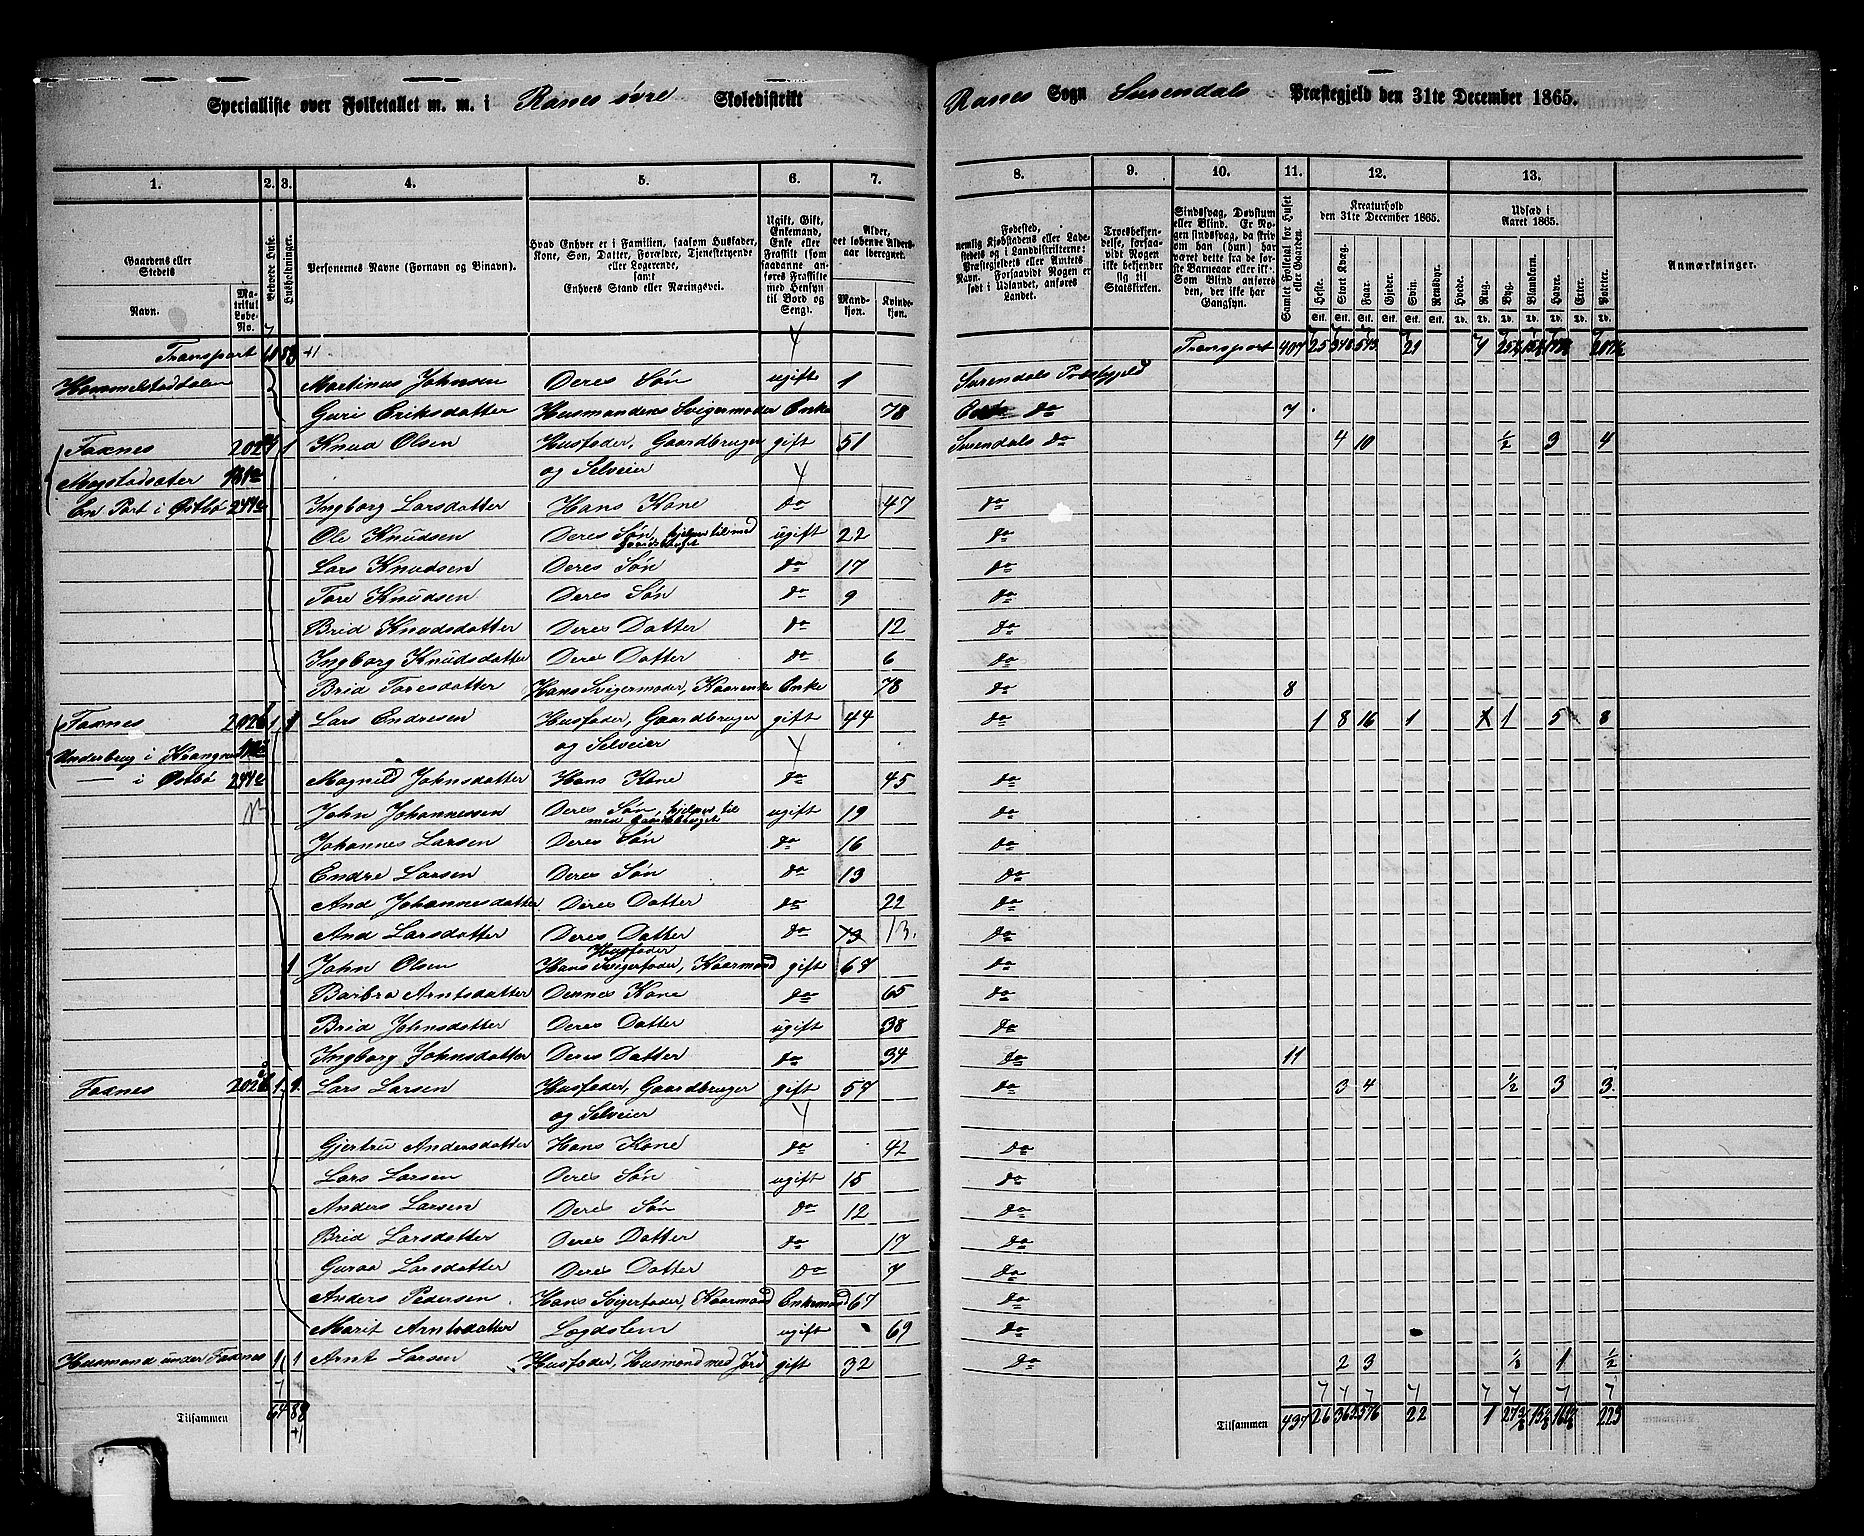 Specialliste over Folketallet m. m. i Ranes øvre Skoledistrikt
Ranes Sogn Surendals Præstegjeld den 31te December 1865.
1. 2. 3. 4. 5. 6. 7. 8. 9. 10. 11. 12. 13.
Gaardens eller Stedets
Navn.
Matrikul Løbe-No.
Beboede Huse.
Husholdninger.
Personernes Navne (Fornavn og Binavn).
Hvad Enhver er i Familien, saasom Husfader, Kone, Søn, Datter, Forældre, Tjenestetyende eller Logerende, samt Enhvers Stand eller Næringsvei.
Ugift, Gift, Enkemand, Enke eller Fraskilt (som saadanne anføres Fraskilte med Hensyn til Bord og Seng).
Alder, det løbende Alders-aar iberegnet.
Mandkjøn. Kvindekjøn.
Fødested, nemlig Kjøbstadens eller Ladestedets og i Landdistrikterne: Præstegjeldets eller Amtets Navn. Forsaavidt Nogen er født i Udlandet, anføres Landet.
Troesbekjendelse, forsaavidt Nogen ikke bekjender sig til Statskirken.
Sindssvag, Døvstum eller Blind. Er Nogen sindssvag, da skrives om han (hun) har været dette fra de første Barneaar eller ikke. Som Blind anføres den, der ikke har Gangsyn.
Samlet Folketal for Huset eller Gaarden.
Kreaturhold den 31te December 1865.
Heste. Stort Kvæg. Faar. Gjeder. Svin. Rensdyr.
Udsæd i Aaret 1865.
Hvede. Rug. Byg. Blandkorn. Havre. Erter. Poteter.
Anmærkninger.
Transport 61 83 +1 Transport 407 25 348 543 21
Martinus Johnsen Deres Søn ugift 1 Surendals
Guri Eriksdatter Husmandens Svigermoder Enke 78 do 7
Foxnes 1 Knud Olsen Husfader, Gaardbruger gift 51 Surendals do 4 10 ½ 3 4
og Selveier
En Part i Østbø Ingborg Larsdatter Hans Kone do 47 do
Ole Knudsen Deres Søn, hjelper til med Gaardsbruget ugift 22 do
Lars Knudsen Deres Søn do 17 do
Tore Knudsen Deres Søn do 9 do
Brid Knudsdatter Deres Datter do 12 do
Ingborg Knudsdatter Deres Datter do 6 do
Brid Toresdatter Hans Svigermoder, Kaarenke Enke 78 do 8
Foxnes 1 1 Lars Endresen Husfader, Gaardbruger gift 44 do 1 8 16 1 1 5 8
Underbrug i og Selveier
— i Østbø Magnild Johnsdatter Hans Kone do 45 do
John Johannessen Deres Søn, hjelper til med Gaardsbruget ugift 19 do
Johannes Larsen Deres Søn do 16 do
Endre Larsen Deres Søn do 13 do
And Johannesdatter Deres Datter do 22 do
And Larsdatter Deres Datter do 13. do
Husfader
1 John Olsen Hans Svigerfader, Kaarmand gift 67 do
Barbra Arntsdatter Dennes Kone do 65 do
Brid Johnsdatter Deres Datter ugift 38 do
Ingborg Johnsdatter Deres Datter do 34 do 11
Foxnes 1 1 Lars Larsen Husfader, Gaardbruger gift 57 do 3 4 ½ 3 3
og Selveier
Gjertru Andersdatter Hans Kone do 42 do
Lars Larsen Deres Søn ugift 15 do
Anders Larsen Deres Søn do 12 do
Brid Larsdatter Deres Datter do 17 do
Guroa Larsdatter Deres Datter do 7 do
Anders Pedersen Hans Svigerfader, Kaarmand Enkemand 67 do
Marit Arntsdatter Lægdslem ugift 69 do
Husmand under Foxnes 1 1 Arnt Larsen Husfader, Husmand med Jord gift 32 do 2 3 ⅛ 1 ½
Tilsammen 64 88 +1 Tilsammen 437 26 365 576 22 1 225